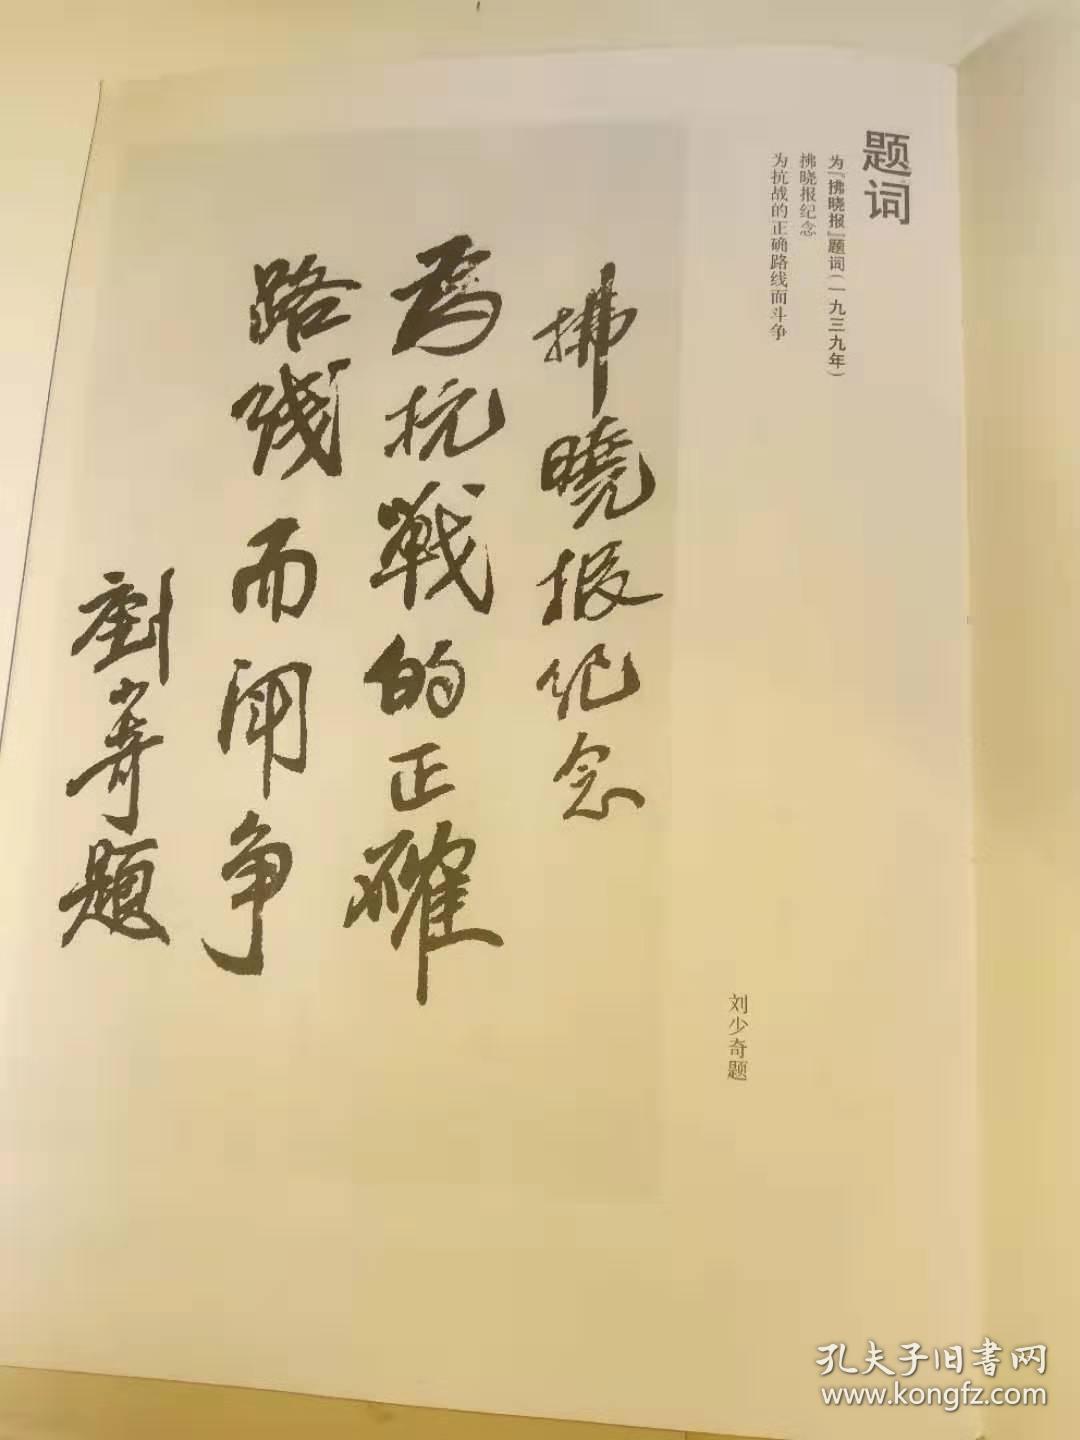 题词
为『拂晓报』题词(一九三九年)
拂晓报纪念
为抗战的正确路线而斗争
刘少奇题
拂曉报纪念
为抗戰的正確
路线而闘争
劉少奇题
孔夫子旧書网
www.kongfz.com